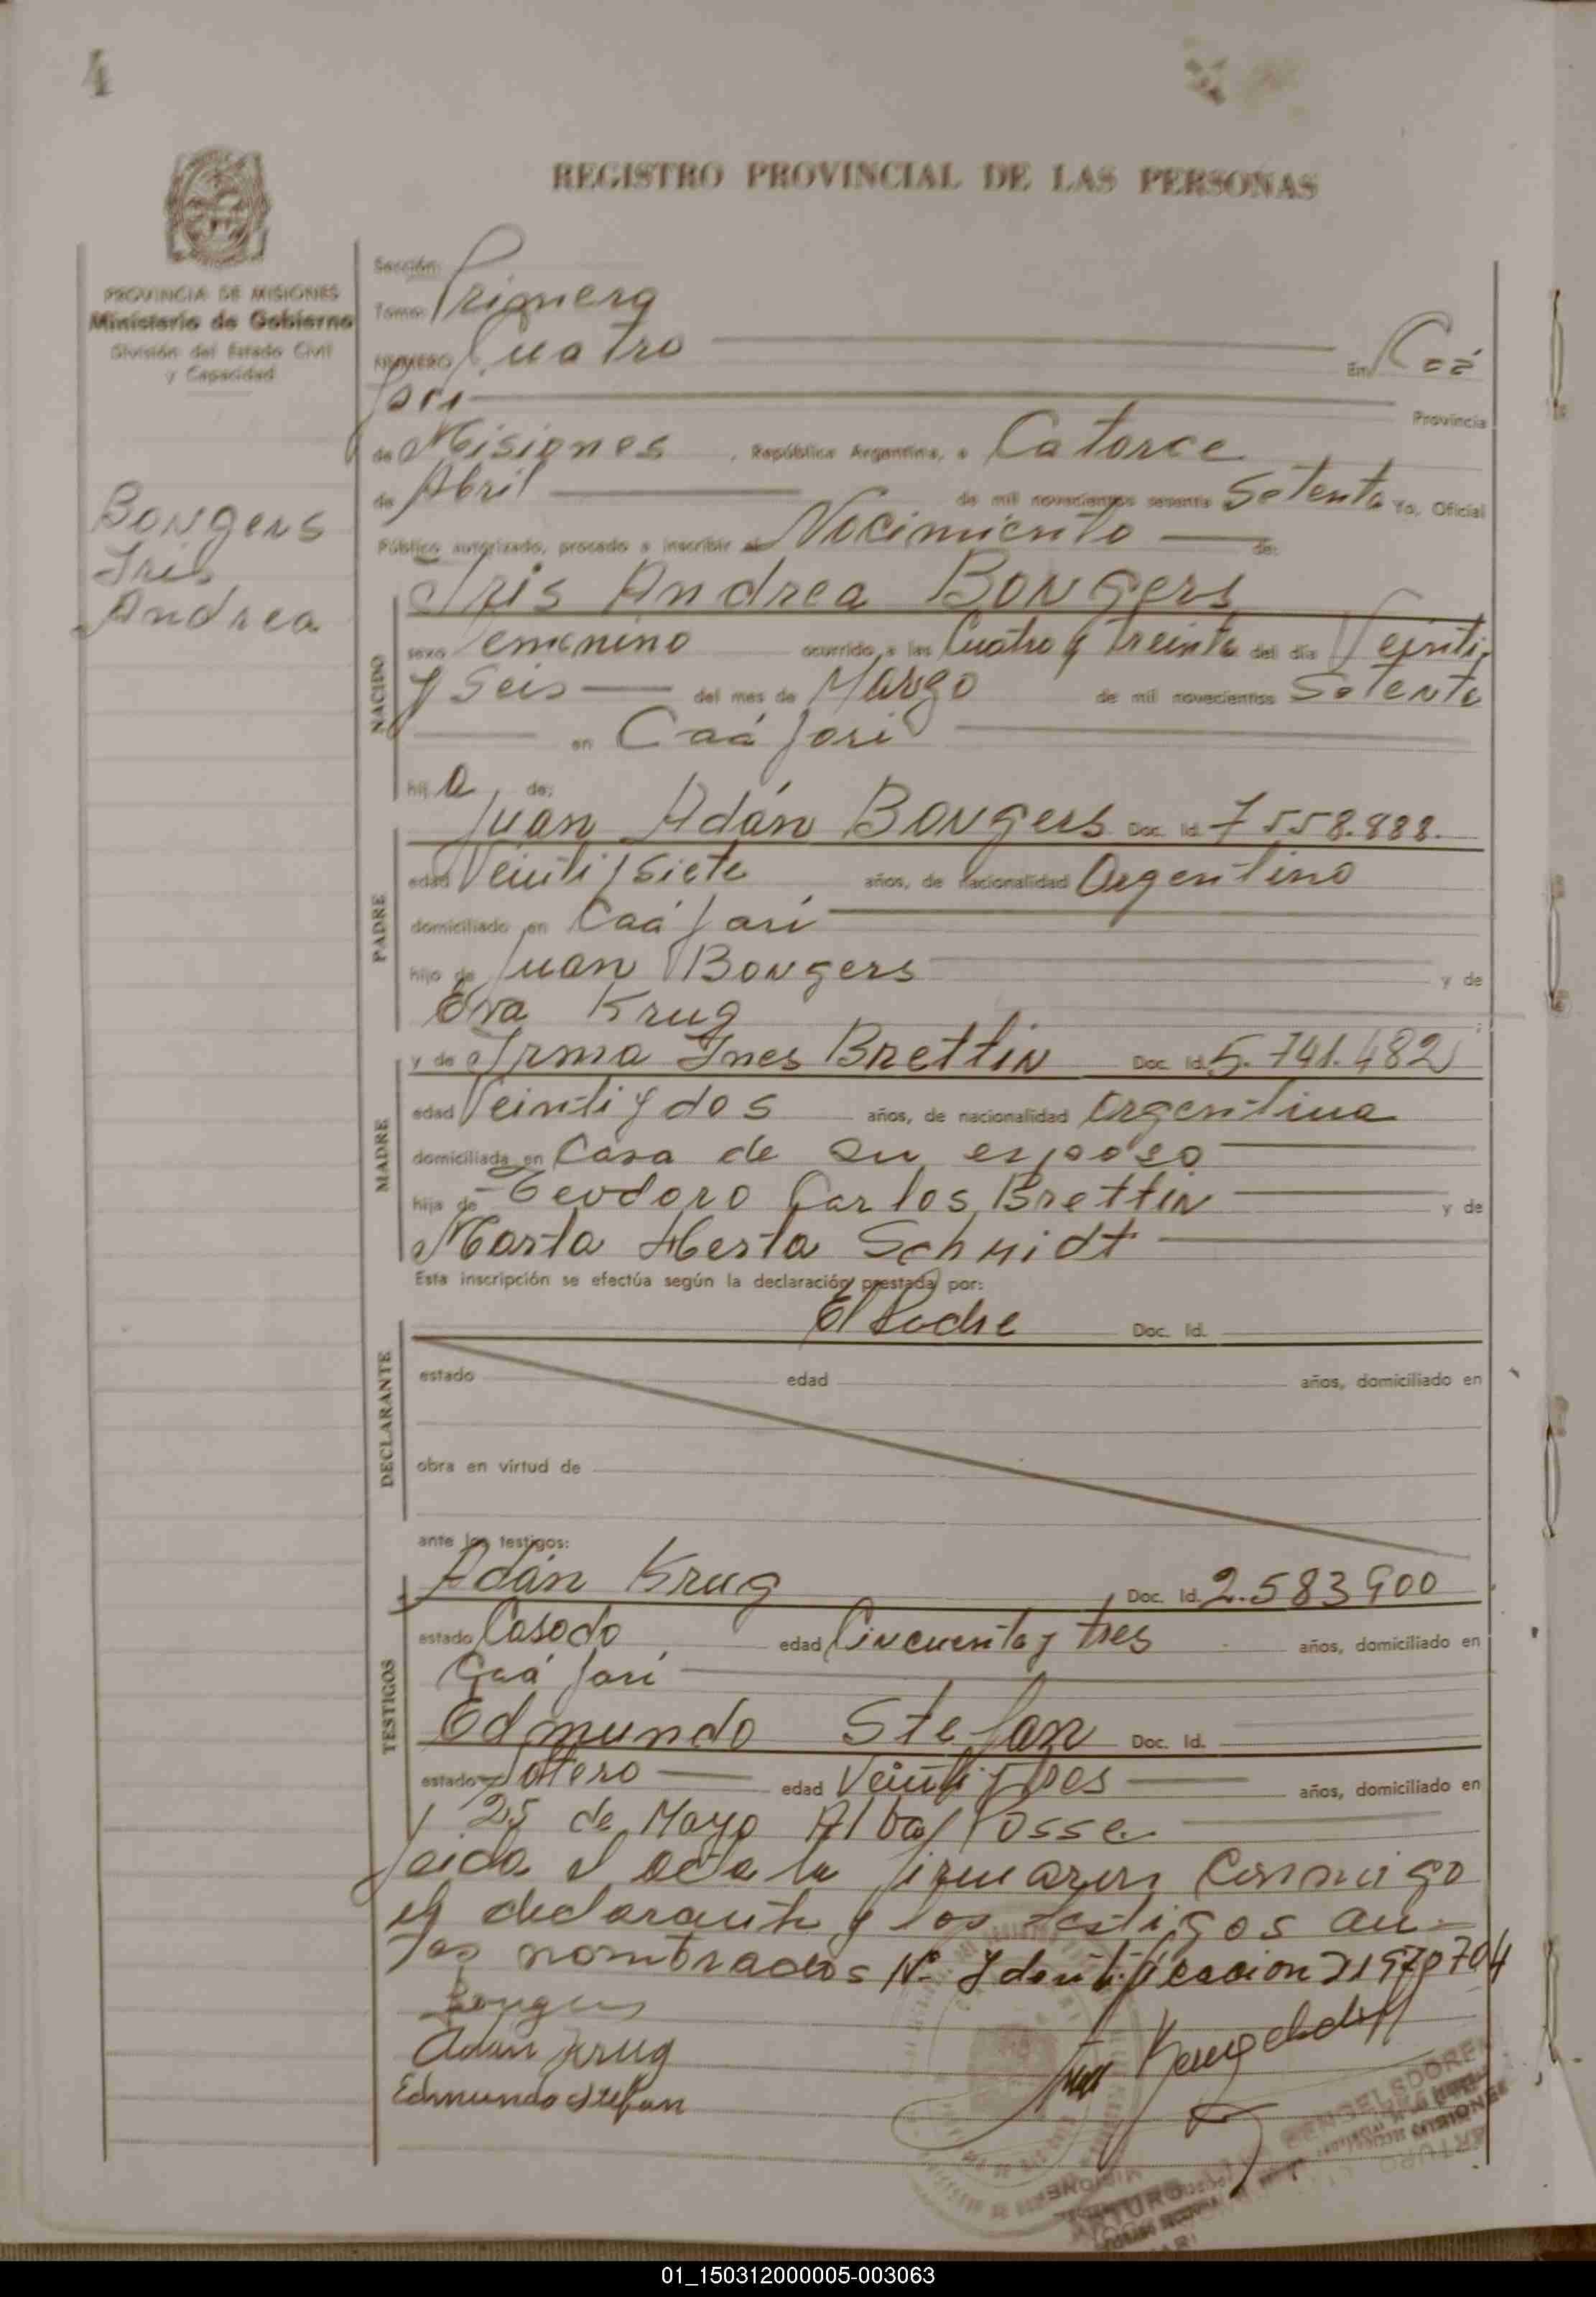 4
REGISTRO PROVINCIAL DE LAS PERSONAS
PROVINCIA DE MISIONES
Ministerio de Gobierno
División del Estado Civil
y Capacidad
Bongers
Iris
Andrea
Sección:
Tomo: Primera
NUMERO Cuatro En Caá
Yari Provincia
de Misiones, República Argentina, a Catorce
de Abril de mil novecientos sesenta Setenta Yo, Oficial
Público autorizado, procedo a inscribir el Nacimiento de:
NACIDO
Iris Andrea Bongers
sexo Femenino ocurrido a las Cuatro y treinta del día Veinti
y Seis del mes de Marzo de mil novecientos Setenta
en Caá Yari
hij a de:
PADRE
Juan Adán Bongers Doc. Id. 7558.888.
edad Veinti y Siete años, de nacionalidad Argentino
domiciliado en Caá Yari
hijo de Juan Bongers y de
Eva Krug
MADRE
y de Irma Ines Brettin Doc. Id. 5.741.482
edad Veinti y dos años, de nacionalidad Argentina
domiciliada en Casa de su esposo
hija de Teodoro Carlos Brettin y de
Marta Herta Schmidt
Esta inscripción se efectúa según la declaración prestada por:
DECLARANTE
El Padre Doc. Id.
estado edad años, domiciliado en
obra en virtud de
ante los testigos:
TESTIGOS
Adán Krug Doc. Id. 2.583900
estado Casado edad Cincuenta y tres años, domiciliado en
Caá Yari
Edmundo Stefan Doc. Id.
estado Soltero edad Veinti y tres años, domiciliado en
25 de Mayo Alba Posse
Leida el acta la firmaron Conmigo
el declarante y los testigos an-
tes nombrados Nº Identificacion
Bongers
Adan Krug
Edmundo Stefan
ARTURO
MISIONES
01_150312000005-003063